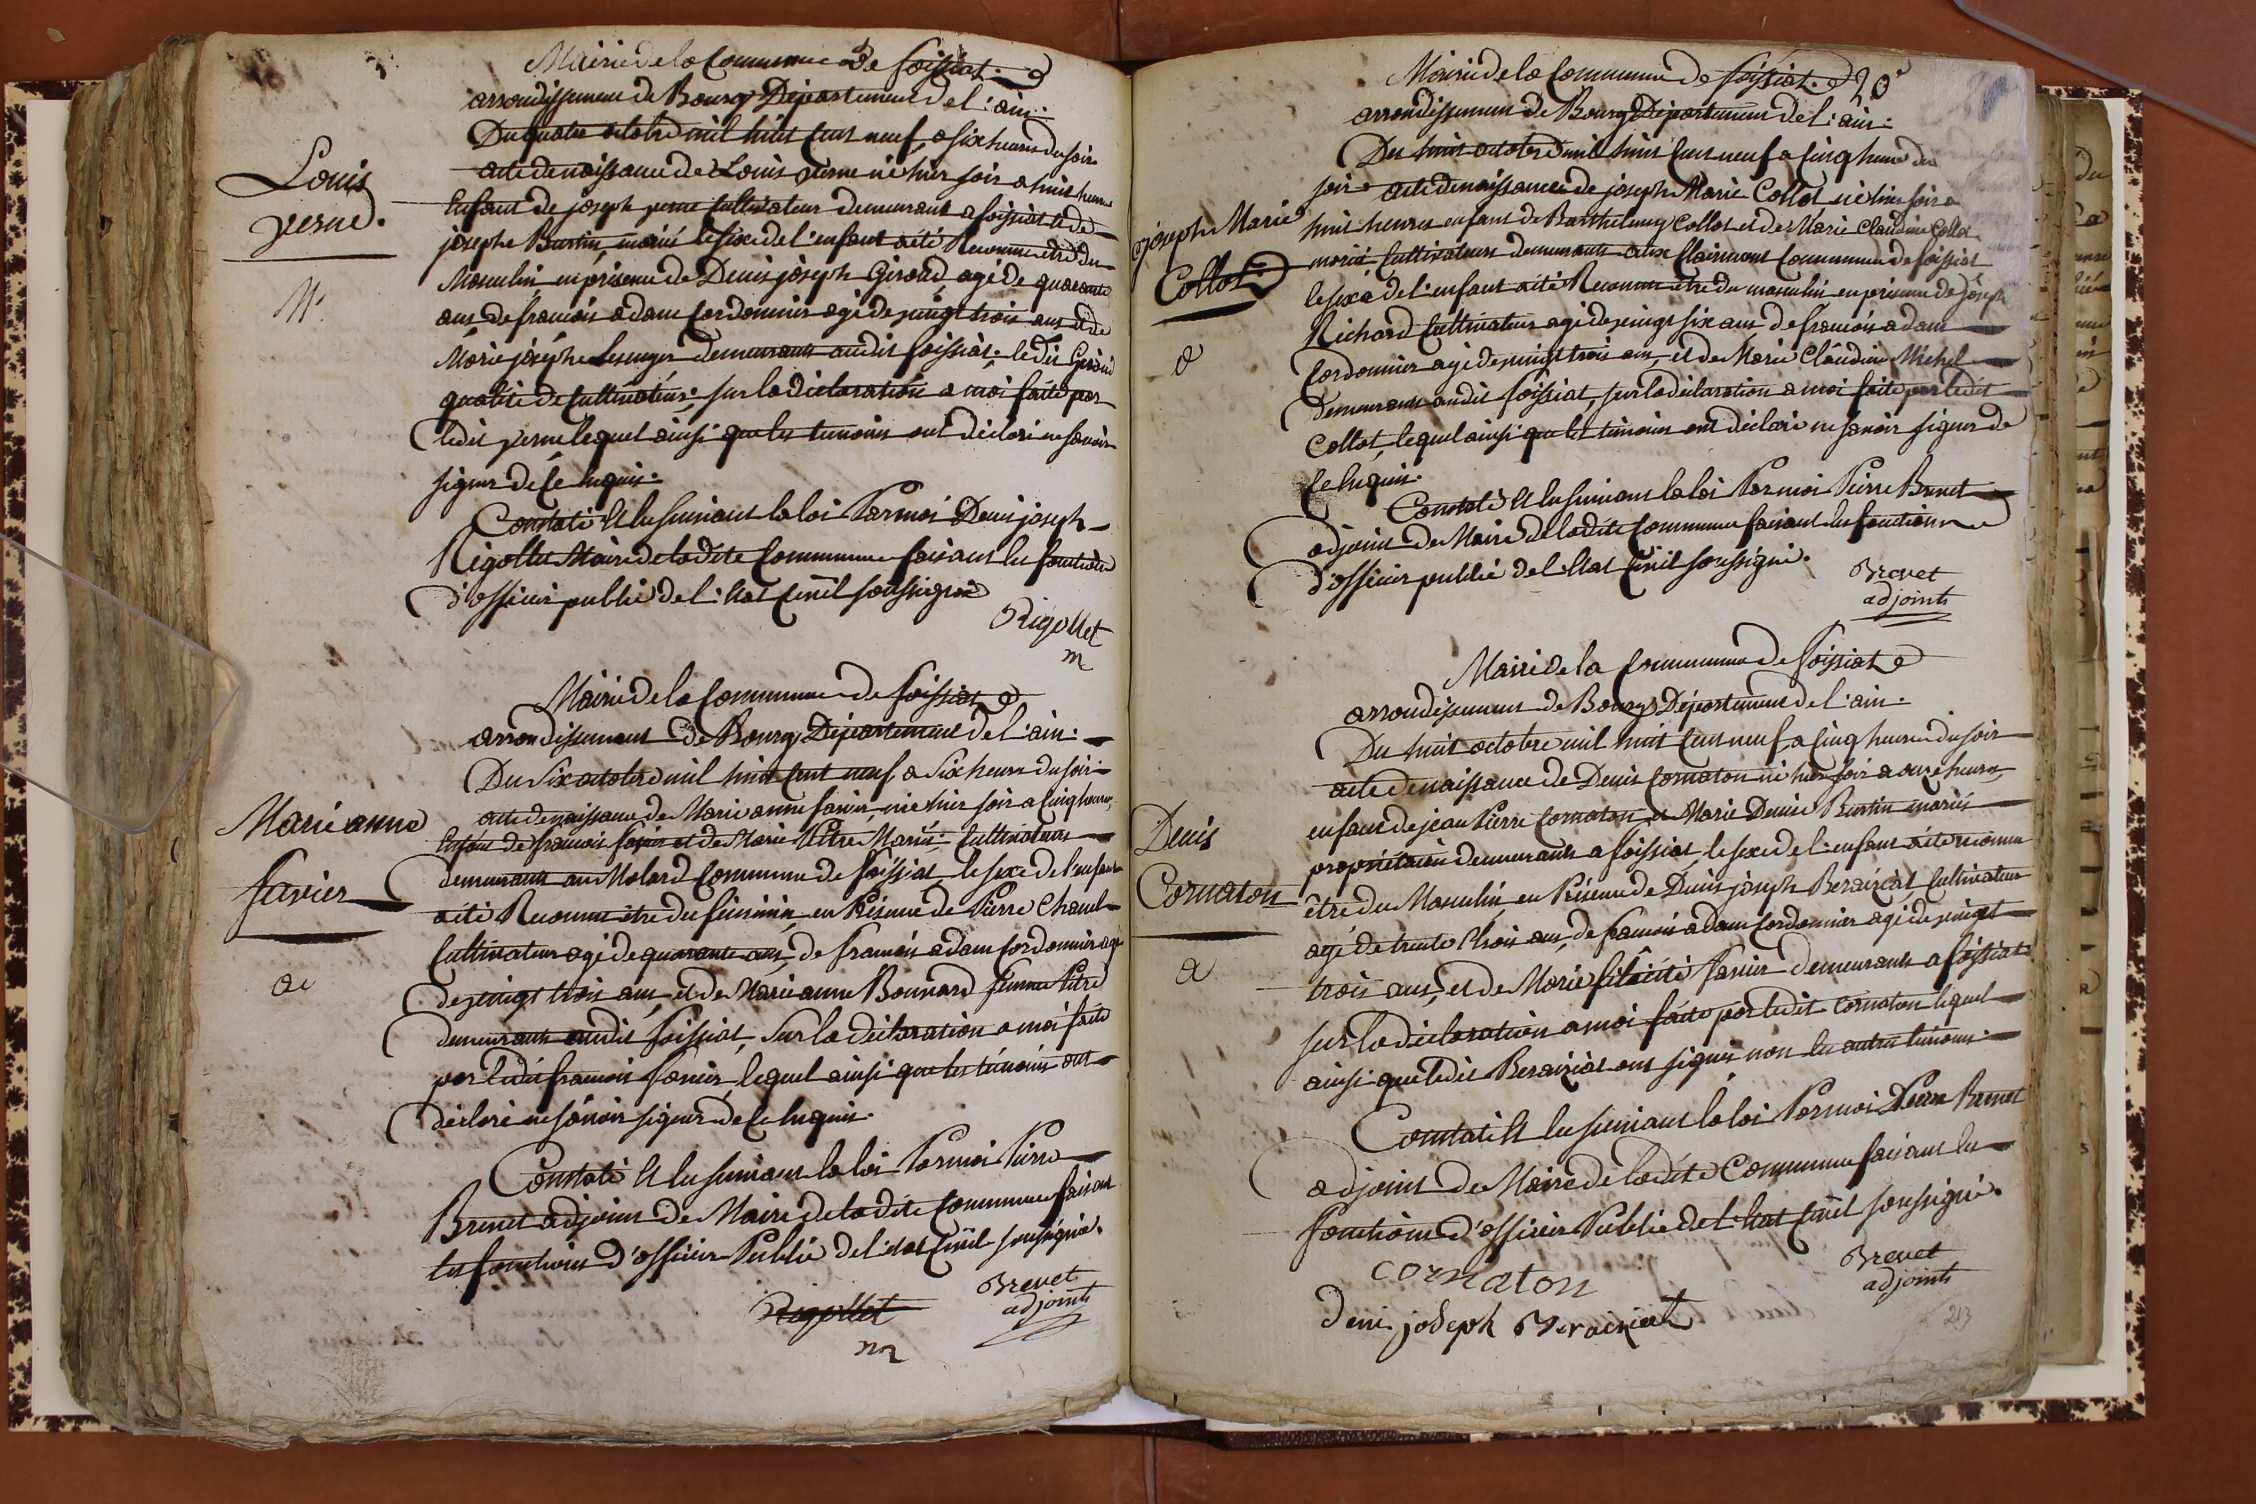 Mairie de la Commune de foissiat.
arrondissement de Bourg Département de l'ain.
Du quatre octobre mil huit cent neuf, a six heures du soir
Louis
verne.
acte de naissance de Louis verne né hier soir a huit heures
Enfant de joseph verne Cultivateur demeurant a foissiat et de
josephe Burtin, mariés le sexe de l'enfant a été Reconnu etre du
Masculin, en présence de Denis joseph Giroud, agé de quarante
ans, de francois adam Cordonnier agé de vingt trois ans et de
Marie josephe demeurants audit foissiat. ledit Giroud
qualité de Cultivateur. sur la déclaration a moi faite par
ledit verne, lequel ainsi que les témoins ont déclaré ne savoir
signer de ce enquis.
Constaté et lu suivant la loi Par moi Denis joseph
Rigollet Maire de la dite Commune faisant les fonctions
d'officier public de l'etat Civil soussigné
Rigollet
m
Mairie de la Commune de foissiat
arrondissement de Bourg Département de l'ain.
Du six octobre mil huit cent neuf a six heures du soir
Marie anne
favier
acte de naissance de Marie anne favier, née hier soir a cinq heures,
Enfant de francois favier et de Marie Mariés, Cultivateurs
demeurants au Molard Commune de foissiat, le sexe de l'enfant
a été Reconnu être du féminin, en Présence de Pierre Chanel
Cultivateur agé de quarante ans, de francois adam Cordonnier agé
de vingt trois ans, et de Marie anne Bonnard femme
demeurants audit foissiat, Sur la déclaration a moi faite
par ledit francois favier, lequel ainsi que les témoins ont
déclaré ne savoir signer de ce enquis.
Constaté et lu suivant la loi Par moi Pierre
Brevet adjoint de Maire de la dite Commune faisant
les fonctions d'officier Public de l'etat Civil soussigné.
Brevet
adjoint
Rigollet
m
Mairie de la Commune de foissiat.
arrondissement de Bourg Département de l'ain.
Du huit octobre mil huit cent neuf a cinq heures du
joseph Marie
Collot
soir acte de naissance de joseph Marie Collot né hier soir a
huit heures enfant de Barthelemy Collot et de Marie Claudine Collot
mariés, Cultivateurs demeurants aux Clairmont Commune de foissiat
le sexe de l'enfant a été Reconnu etre du masculin en présence de joseph
Richard Cultivateur agé de vingt six ans de francois adam
Cordonnier agé de vingt trois ans, et de Marie Claudine Michel
demeurants audit foissiat, sur la déclaration a moi faite par ledit
Collot, lequel ainsi que les témoins ont déclaré ne savoir signer de
ce enquis.
Constaté et lu suivant la loi Par moi Pierre Brevet
adjoint de Maire de la dite Commune faisant les fonctions
d'officier public de l'etat Civil soussigné.
Brevet
adjoint
Mairie de la Commune de foissiat
arrondissement de Bourg Département de l'ain.
Du huit octobre mil huit cent neuf, a cinq heures du soir
Denis
Cornaton
acte de naissance de Denis Cornaton né hier soir a onze heures,
enfant de jean Pierre Cornaton, et Marie Denise Burtin mariés
propriétaires demeurants a foissiat, le sexe de l'enfant a été reconnu
être du Masculin, en Présence de Denis joseph Beraiziat, Cultivateur
agé de trente trois ans, de francois adam Cordonnier agé de vingt
trois ans, et de Marie félicité favier demeurants a foissiat.
sur la déclaration a moi faite par ledit Cornaton lequel
ainsi que ledit Beraiziat ont signés non les autres témoins.
Constaté et lu suivant la loi Par moi Pierre Brevet
adjoint de Maire de la dite Commune faisant les
fonctions d'officier Public de l'etat Civil soussigné.
Brevet
adjoint
cornaton
Deni joseph Beraiziat
213